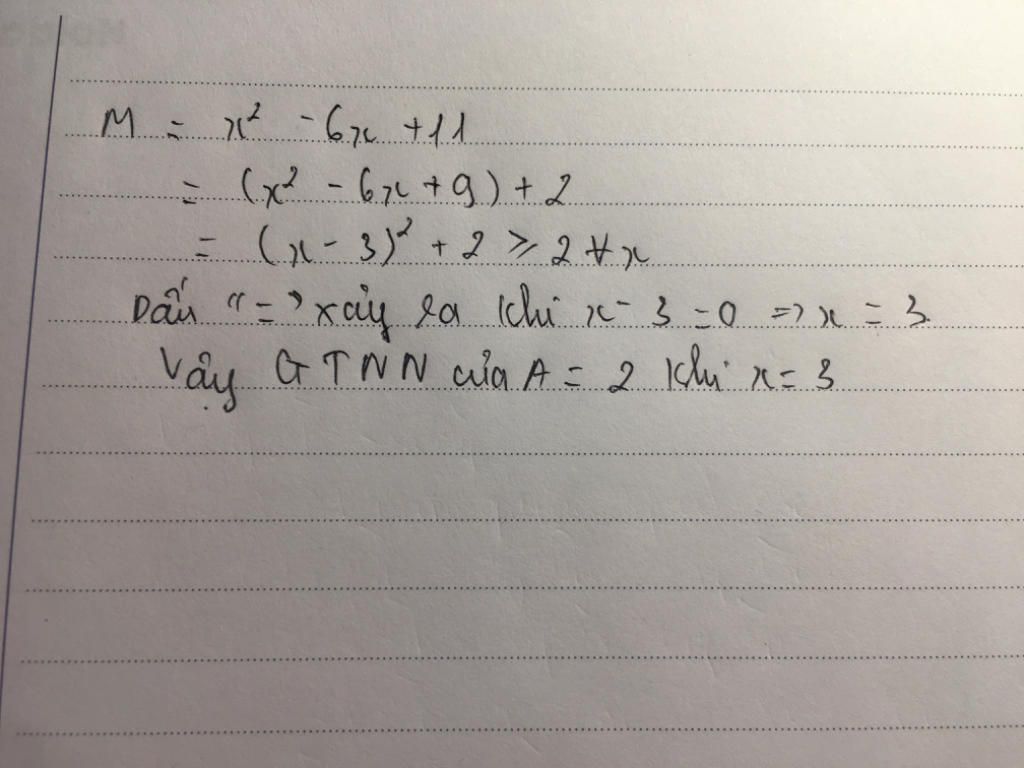 M = x² - 6x + 11
= (x² - 6x + 9) + 2
= (x - 3)² + 2 ≥ 2 ∀ x
Dấu "=" xảy ra khi x - 3 = 0 => x = 3
Vậy GTNN của A = 2 khi x = 3